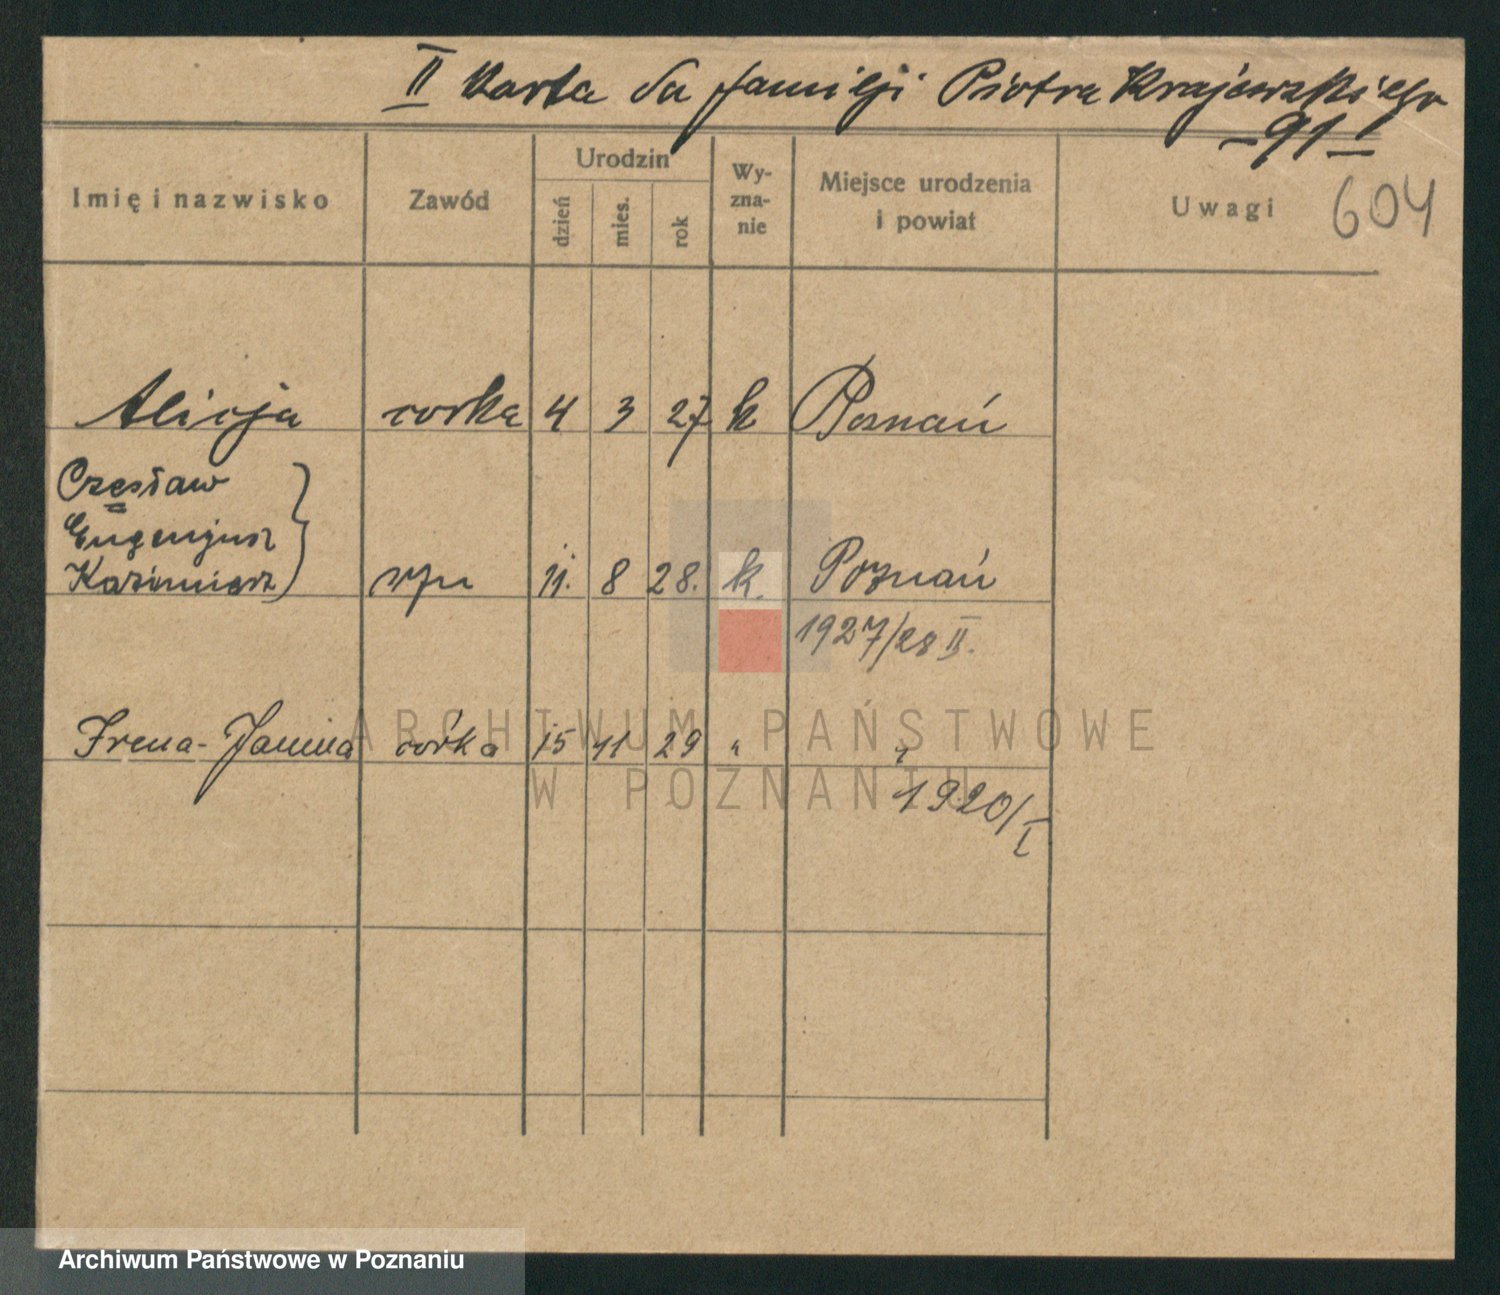 II Karta do familji Piotra Krajewskiego
–91–I
Imię i nazwisko Zawód Urodzin dzień mies. rok Wy-zna-nie Miejsce urodzenia i powiat Uwagi 604
Alicja corka 4 3 27 k Poznań
Czesław
Eugenjusz
Kazimierz syn 11. 8 28. k. Poznań
1927/28 II.
Irena-Janina córka 15 11 29 " "
1920/I
ARCHIWUM PAŃSTWOWE
W POZNANIU
Archiwum Państwowe w Poznaniu